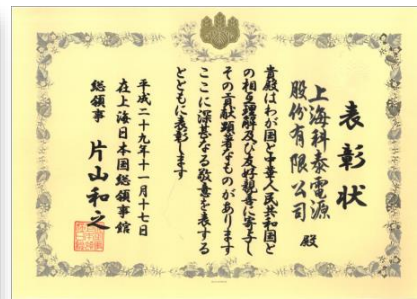 表彰状
上海科泰電源
股份有限公司 殿
貴殿はわが国と中華人民共和国と
の相互理解及び友好親善に寄与し
その貢献顕著なものがあります
ここに深甚なる敬意を表する
とともに表彰します
平成二十九年十一月十七日
在上海日本国総領事館
総領事 片山和之